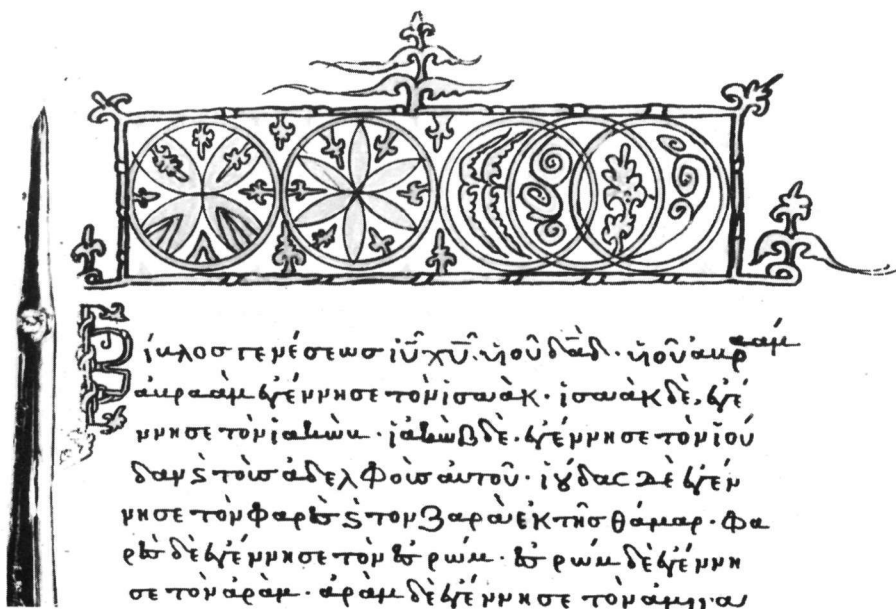 Βίβλος γενέσεως ἰῡ χῡ. ὑιοῦ δᾱδ. ὑιοῦ ἀβραάμ
ἀβραὰμ ἐγέννησε τὸν ἰσαὰκ. ἰσαὰκ δὲ, ἐγέ
ννησε τὸν ἰακὼβ. ἰακὼβ δὲ. ἐγέννησε τὸν ἰού
δαν ϗ τοὺσ ἀδελφοὺσ ἀυτοῦ. ἰούδας δὲ ἐγέν
νησε τὸν φαρὲσ ϗ τὸν ζαρὰ ἐκ τῆσ θάμαρ. φα
ρὲσ δὲ ἐγέννησε τὸν ἐσρώμ. ἐσρώμ δὲ ἐγέννη
σε τὸν ἀράμ. ἀρὰμ δὲ ἐγέννησε τὸν ἀμινα